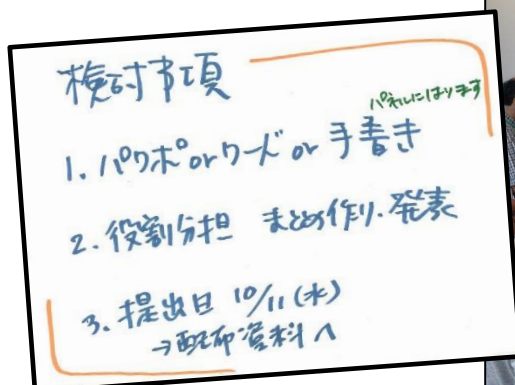 検討事項
パネルにはります
1. パワポorワードor手書き
2. 役割分担 まとめ作り・発表
3. 提出日 10/11(水)
→配布資料へ